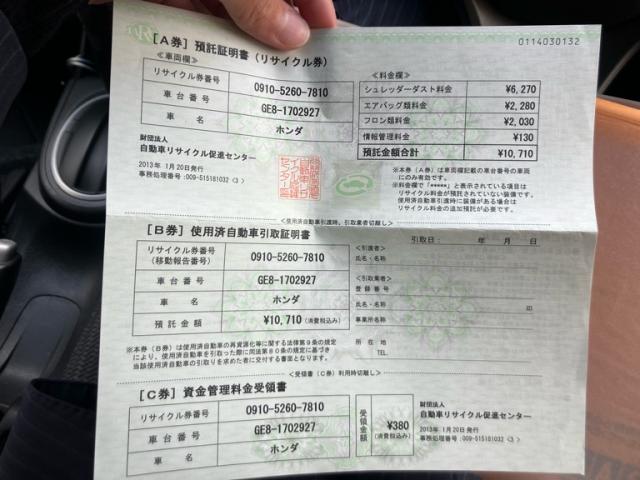 0114030132
[A券] 預託証明書(リサイクル券)
<車両欄>
リサイクル券番号 0910-5260-7810
車台番号 GE8-1702927
車名 ホンダ
財団法人
自動車リサイクル促進センター
2013年 1月20日発行
事務処理番号:009-515181032 <3>
<料金欄>
シュレッダーダスト料金 ¥6,270
エアバッグ類料金 ¥2,280
フロン類料金 ¥2,030
情報管理料金 ¥130
預託金額合計 ¥10,710
※本券(A券)は車両欄記載の車台番号の車両
にのみ有効です。
※料金欄で「*****」と表示されている項目は
リサイクル料金が預託されていない装備です。
使用済自動車引渡時に装備がある場合は
リサイクル料金の追加預託が必要です。
<使用済自動車引渡時、引取業者切離し>
[B券] 使用済自動車引取証明書
引取日: 年 月 日
リサイクル券番号
(移動報告番号) 0910-5260-7810
車台番号 GE8-1702927
車名 ホンダ
預託金額 ¥10,710 (消費税込み)
<引渡者>
氏名・名称
<引取業者>
登録番号
氏名・名称 印
事業所名
所在地
TEL
※本券(B券)は使用済自動車の再資源化等に関する法律第9条の規定
により、使用済自動車を引取った際に同法第80条の規定に基づき
当該使用済自動車の引取りを求めた者に交付する書面となります。
<受領書(C券)利用時切離し>
[C券] 資金管理料金受領書
リサイクル券番号 0910-5260-7810
車台番号 GE8-1702927
車名 ホンダ
受領金額 ¥380
(消費税込み)
財団法人
自動車リサイクル促進センター
2013年 1月20日発行
事務処理番号:009-515181032 <3>